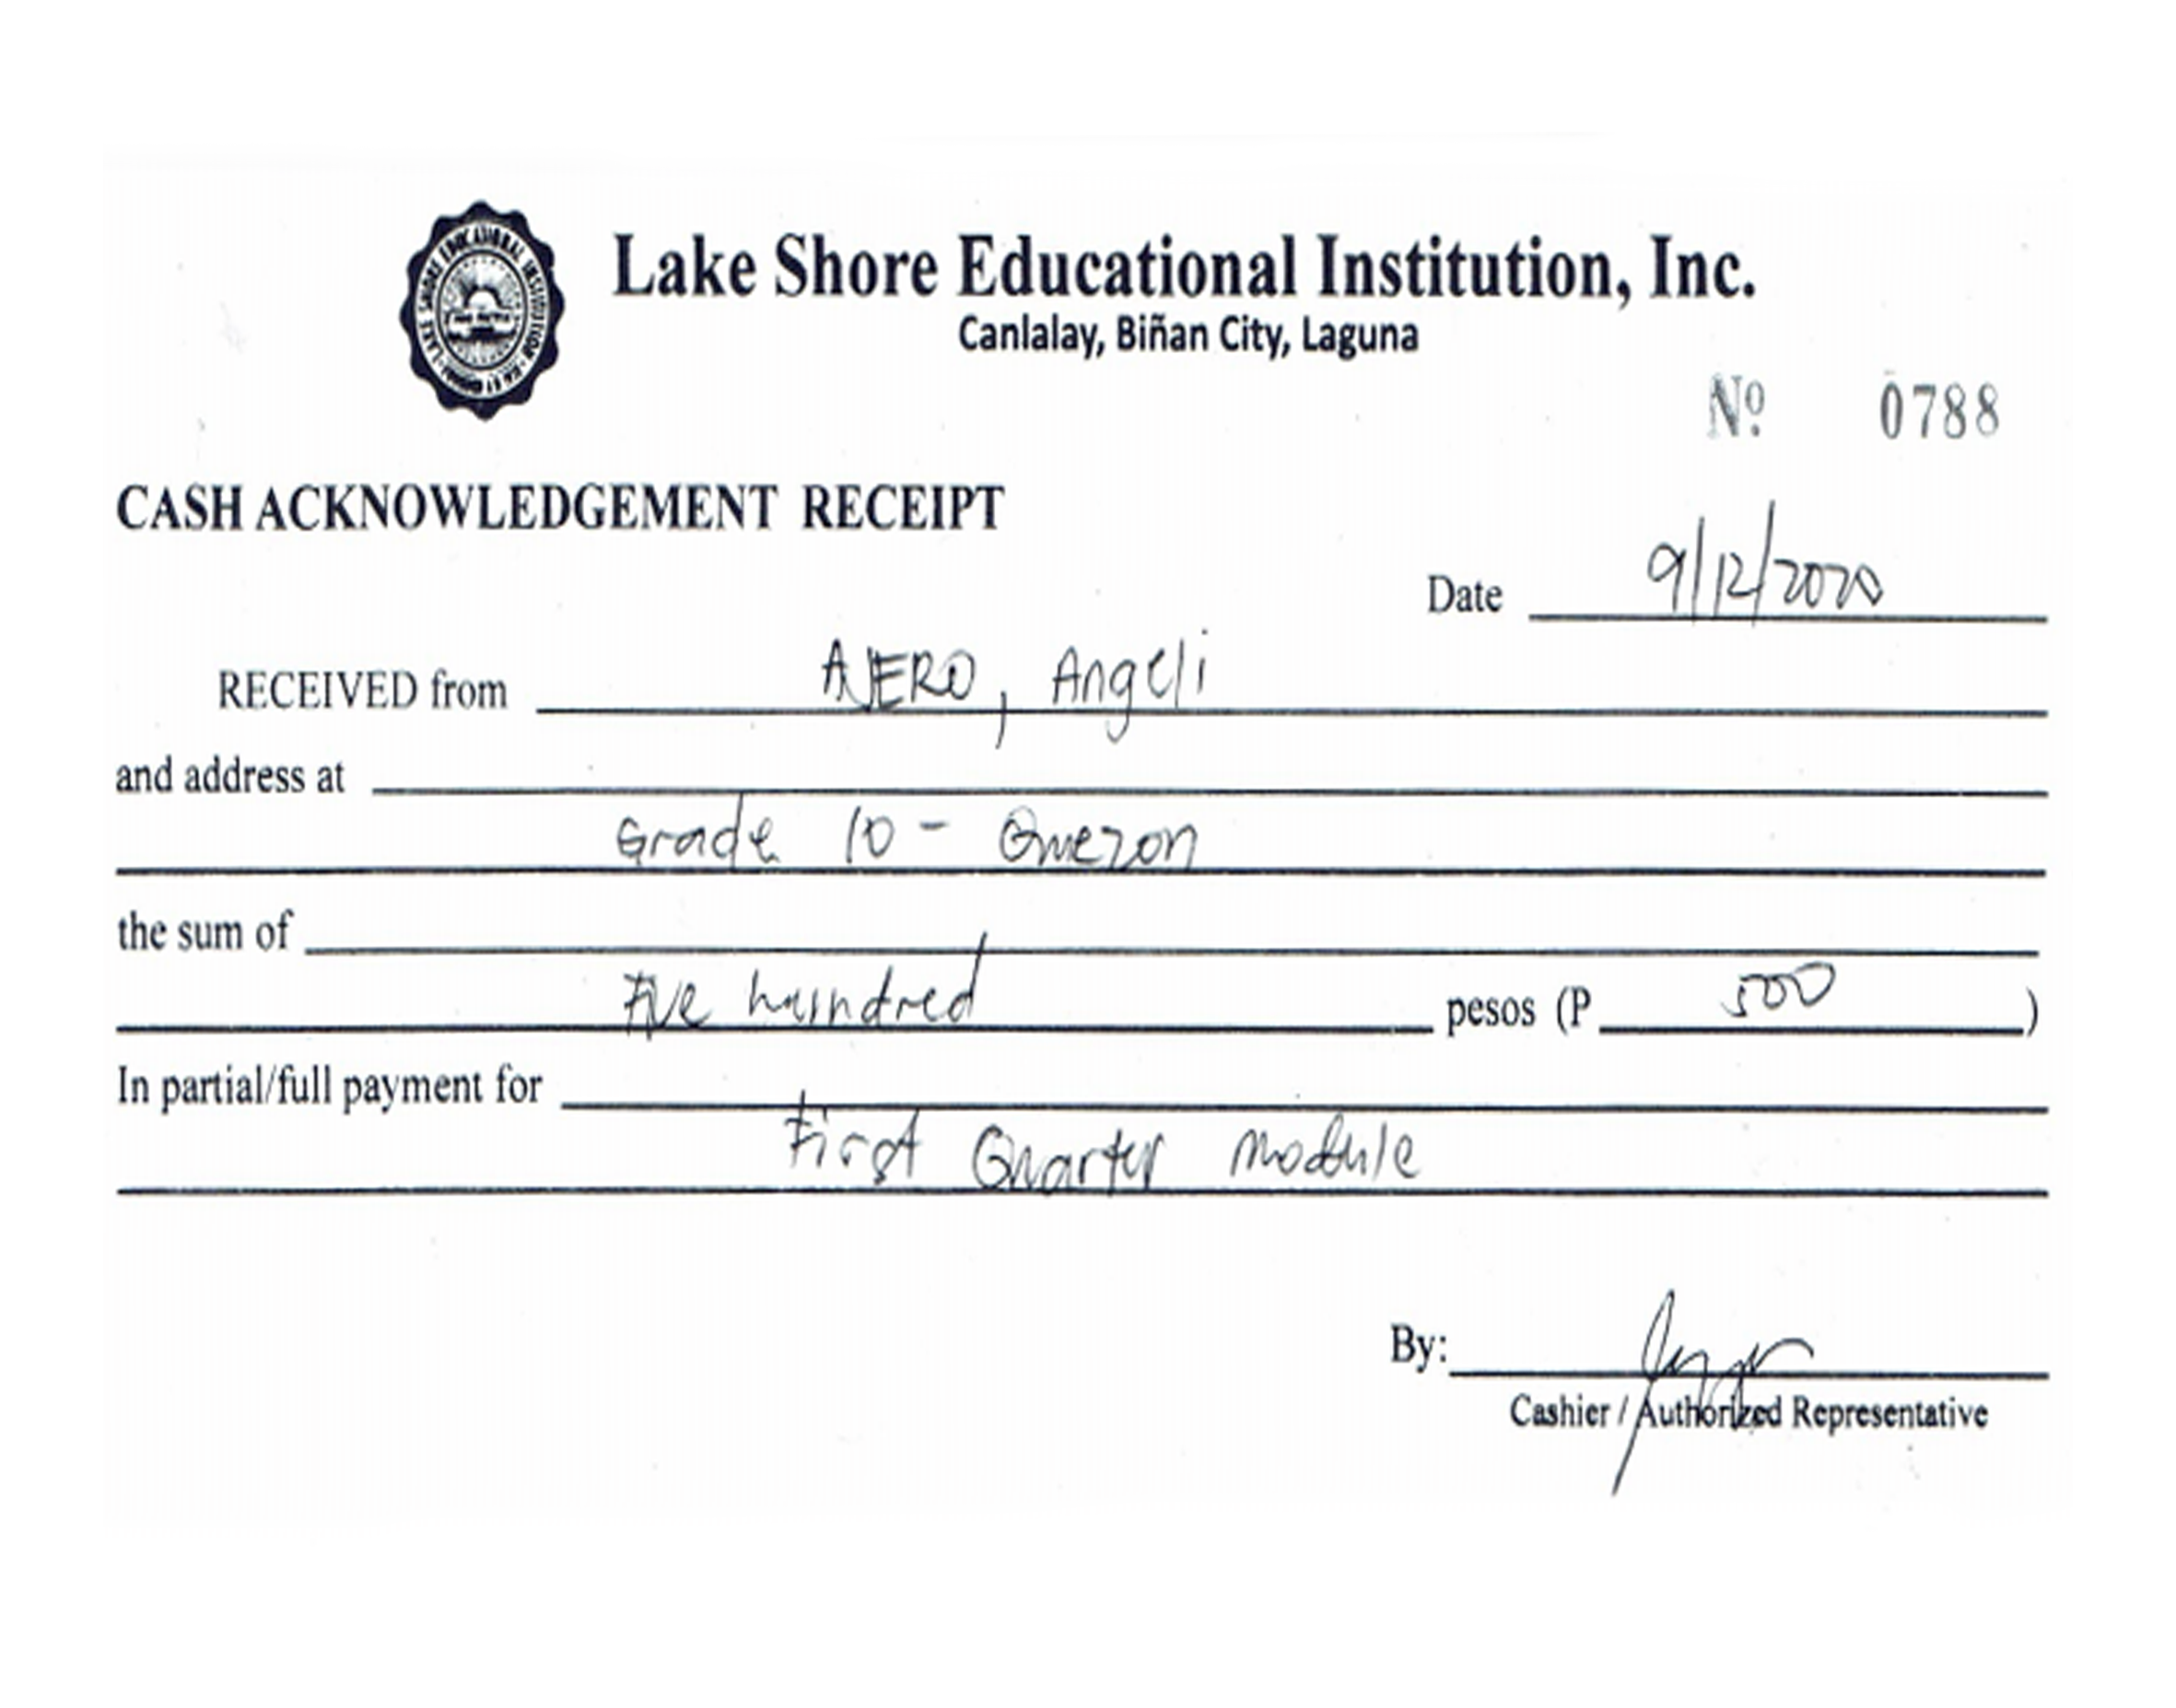 LAKE SHORE EDUCATIONAL INSTITUTION
Lake Shore Educational Institution, Inc.
Canlalay, Biñan City, Laguna
Nº 0788
CASH ACKNOWLEDGEMENT RECEIPT
Date 9/12/2020
RECEIVED from AJERO, Angeli
and address at
Grade 10 - Quezon
the sum of
Five hundred pesos (P 500 )
In partial/full payment for
First Quarter Module
By:
Cashier / Authorized Representative